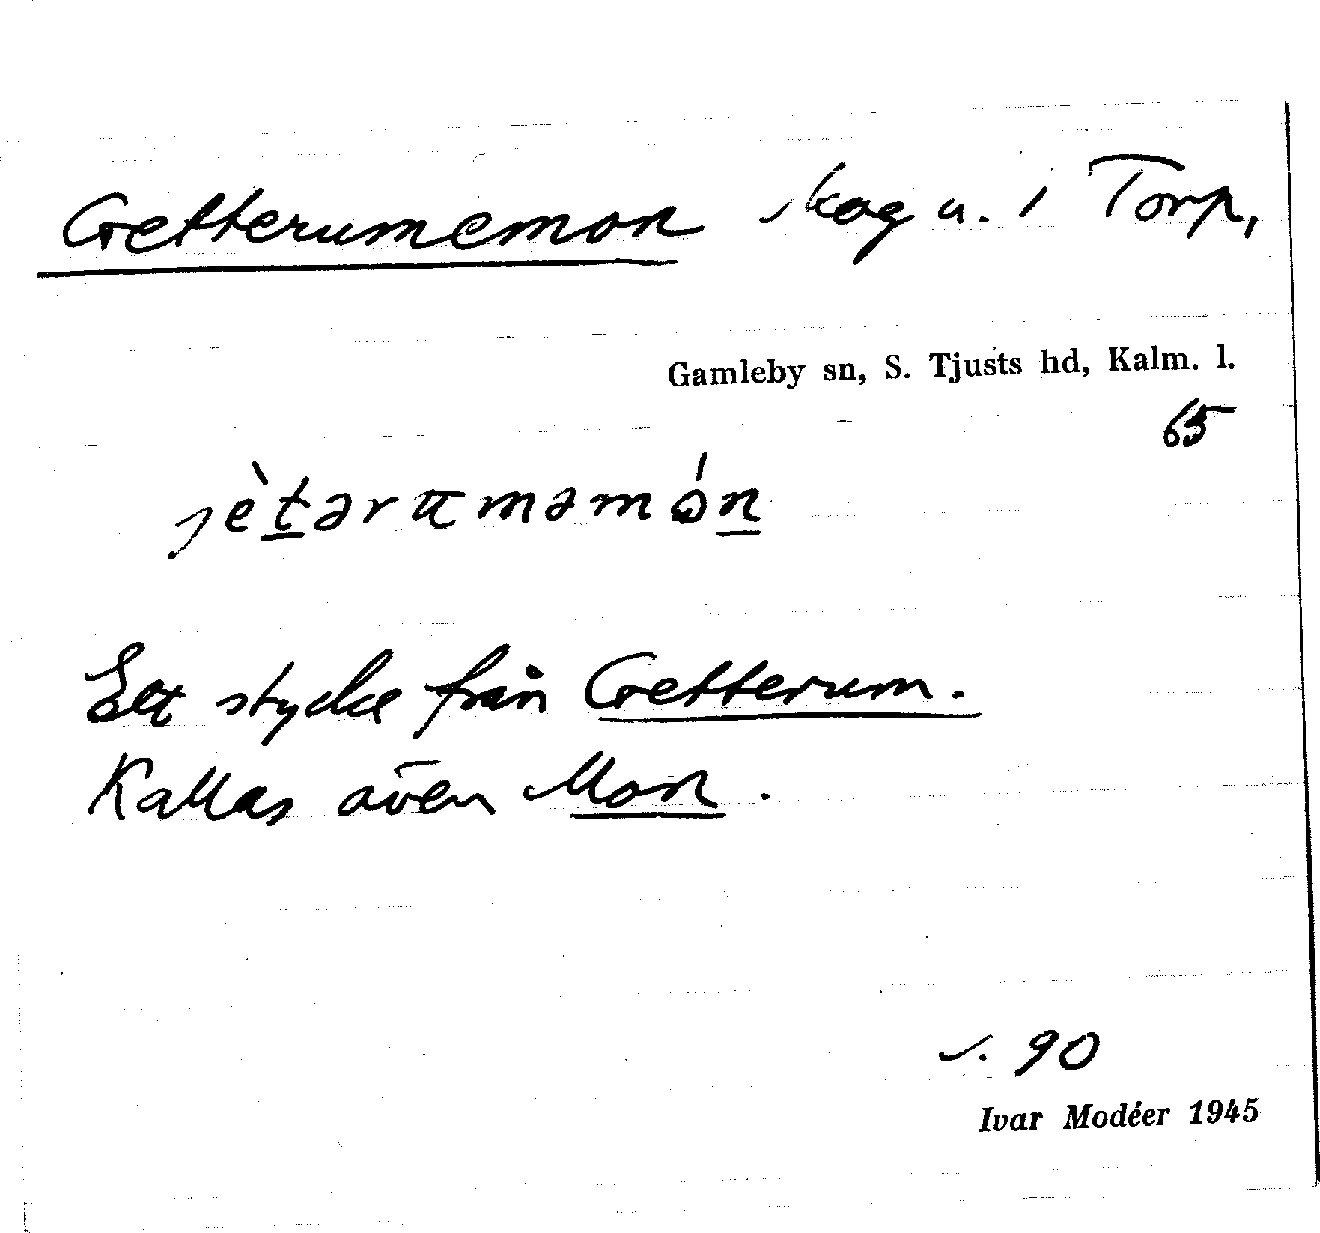 Getterumemon skog u. i Torp,
Gamleby sn, S. Tjusts hd, Kalm. l.
65
jètərumemón
Ett stycke från Getterum.
Kallas även Mon.
s. 90
Ivar Modéer 1945